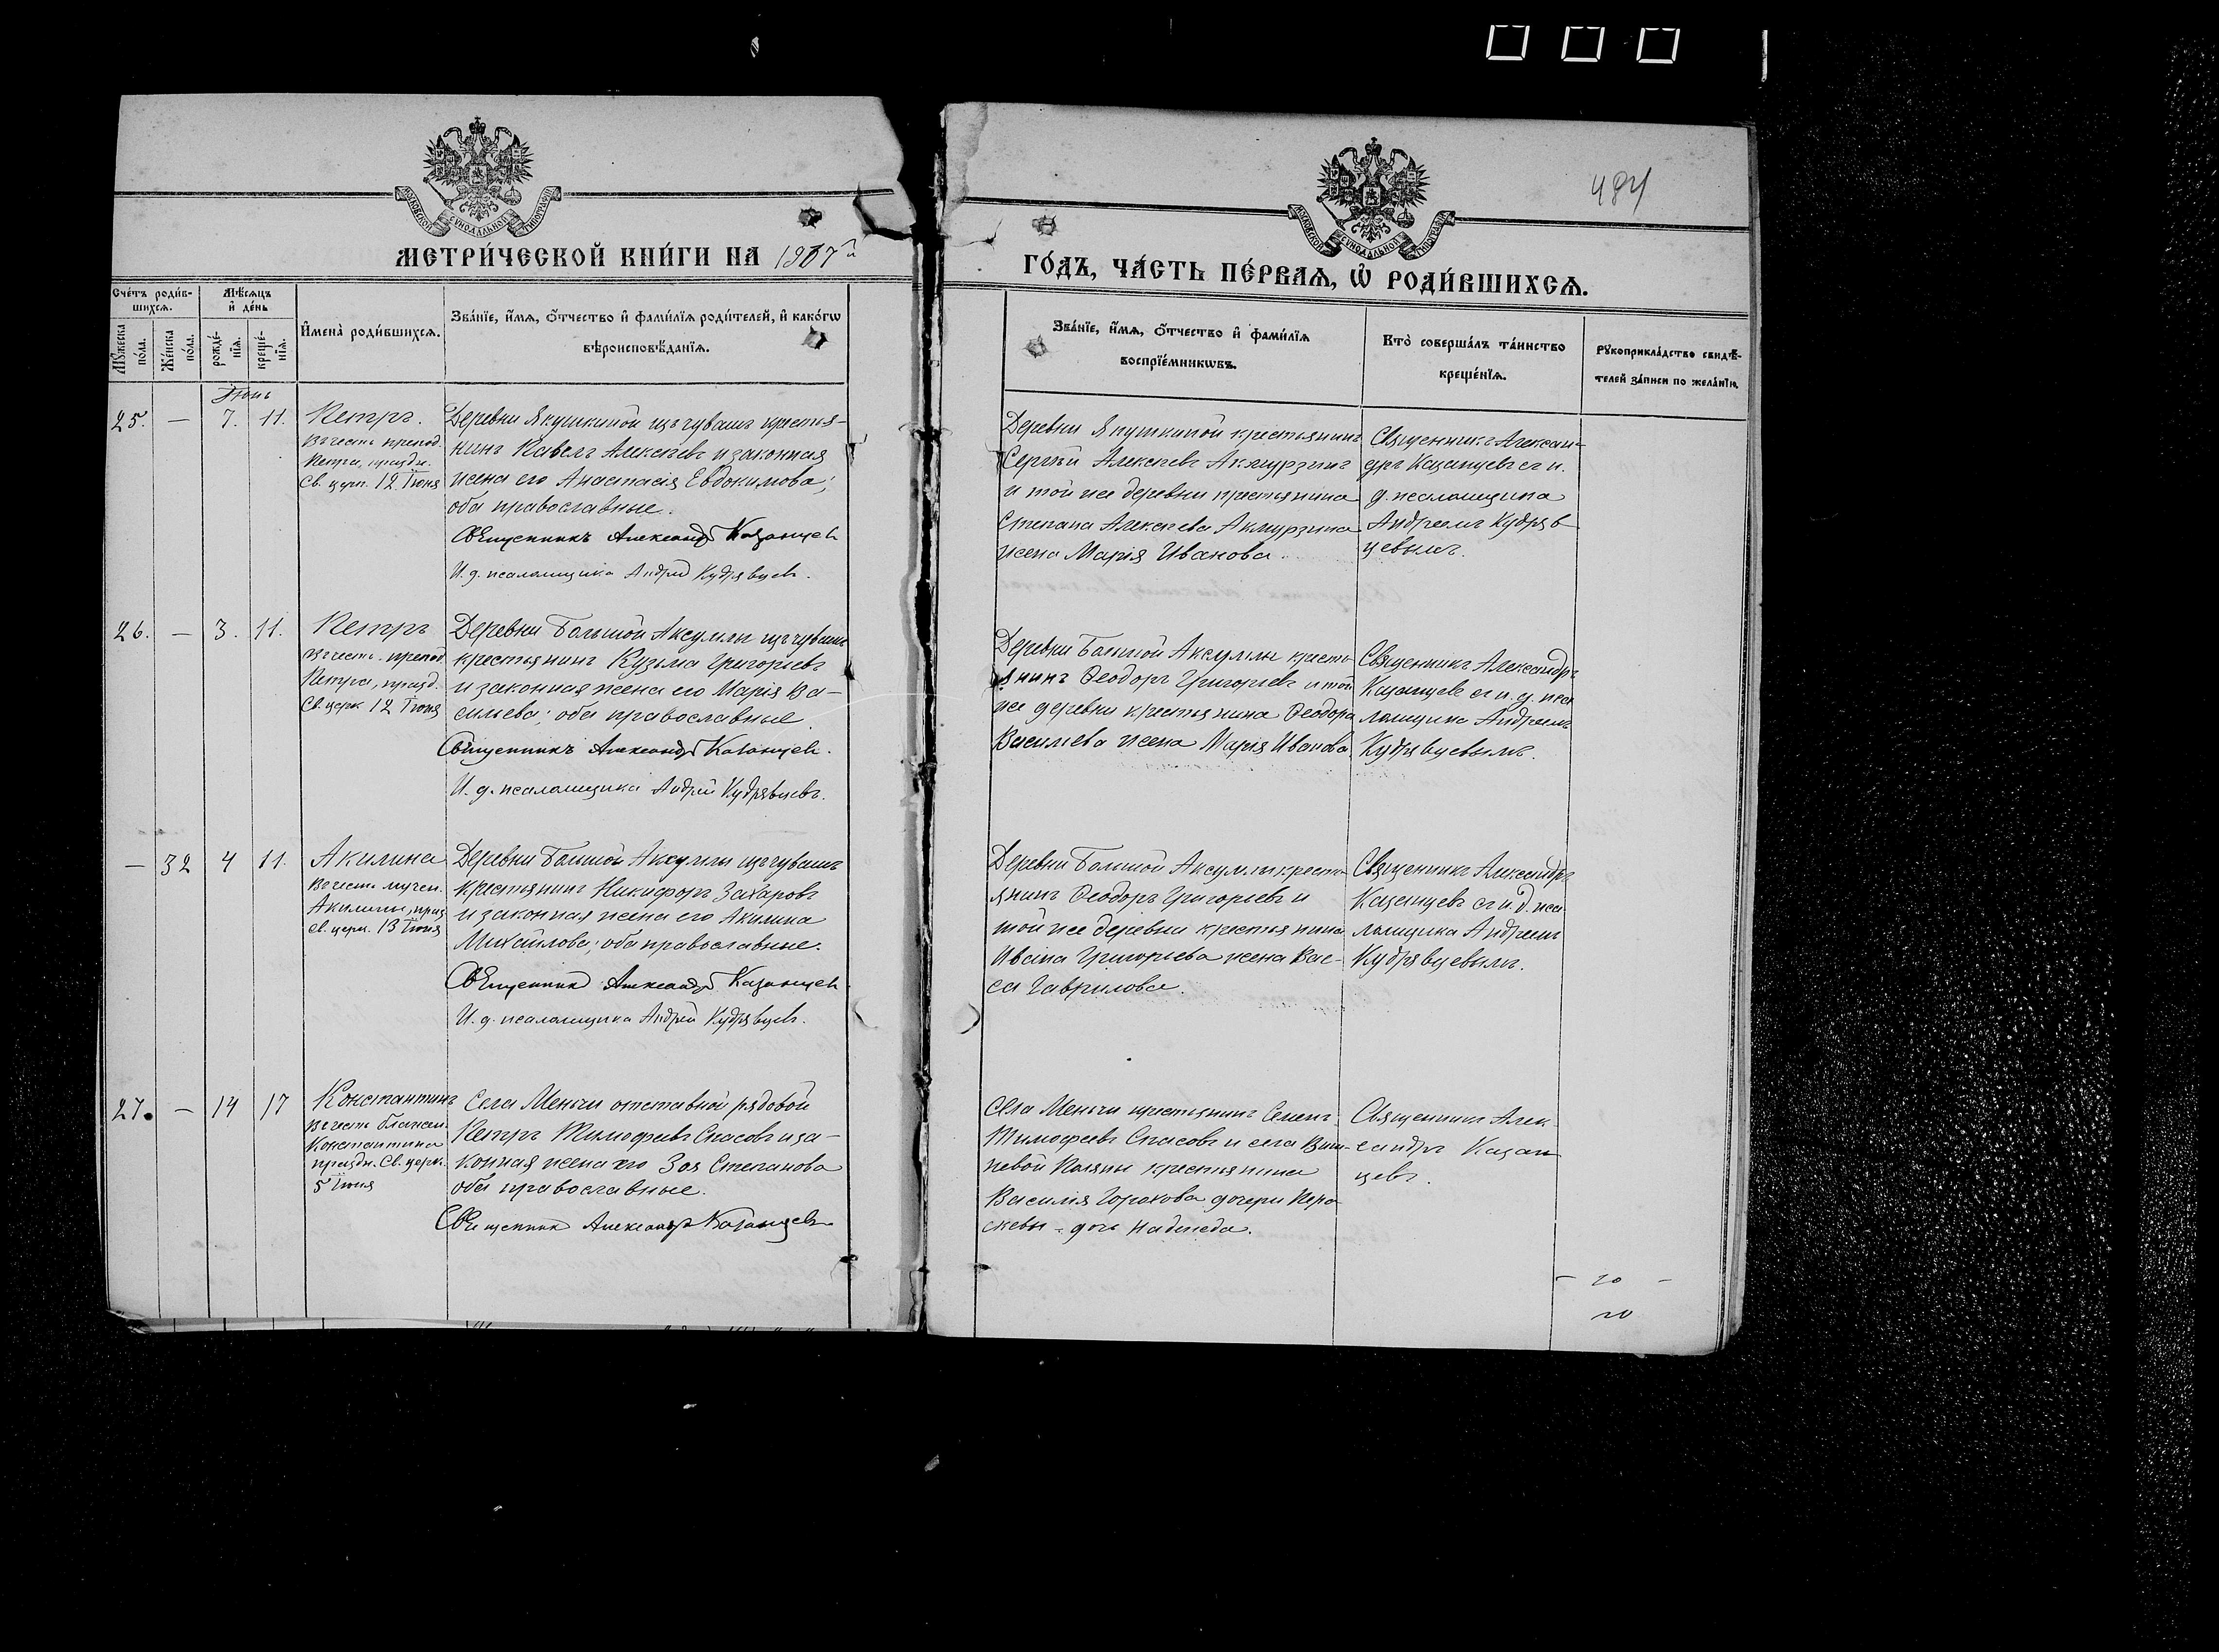 484
МОСКОВСКОЙ СѴНОДАЛЬНОЙ ТИПОГРАФІИ
МОСКОВСКОЙ СѴНОДАЛЬНОЙ ТИПОГРАФІИ
МЕТРИ́ЧЕСКОЙ КНИ́ГИ НА 1907й
ГО́ДЪ, ЧА́СТЬ ПЕ́РВАѦ, Ѡ҆ РОДИ́ВШИХСѦ.
Сче́тъ роди́в-
шихсѧ.
Мꙋ́жеска
по́ла.
Же́нска
по́ла.
Мѣ́сѧцъ
и҆ де́нь
рожде́-
нїѧ.
креще́-
нїѧ.
И҆мена̀ роди́вшихсѧ.
Зва́нїе, и҆́мѧ, ѻ҆́тчество и҆ фами́лїѧ роди́телей, и҆ како́гѡ
вѣроисповѣ́данїѧ.
Зва́нїе, и҆́мѧ, ѻ҆́тчество и҆ фами́лїѧ
воспрїе́мникѡвъ.
Кто̀ соверша́лъ та́инство
креще́нїѧ.
Рꙋкоприкла́дство свидѣ́-
телей за́писи по жела́нїю.
Іюнь
25. — 7. 11.
Петръ.
Въ честь препод.
Петра, праздн.
Св. церк. 12 Іюня
Деревни Якушкиной изъ чувашъ крестья-
нинъ Павелъ Алексѣевъ и законная
жена его Анастасія Евдокимова;
оба православные.
Священникъ Александръ Казанцевъ
И. д. псаломщика Андрей Кудрявцевъ.
Деревни Якушкиной крестьянинъ
Сергѣй Алексѣевъ Акмурзинъ
и той же деревни крестьянина
Степана Алексѣева Акмурзина
жена Марія Иванова.
Священникъ Алексан-
дръ Казанцевъ съ и.
д. псаломщика
Андреемъ Кудряв-
цевымъ.
26. — 3. 11.
Петръ
Въ честь препод.
Петра, празд.
Св. церк. 12 Іюня
Деревни Большой Аксумлы изъ чувашъ
крестьянинъ Кузьма Григорьевъ
и законная жена его Марія Ва-
сильева; оба православные.
Священникъ Александръ Казанцевъ.
И. д. псаломщика Андрей Кудрявцевъ.
Деревни Большой Аксумлы кресть-
янинъ Ѳеодоръ Григорьевъ и той
же деревни крестьянина Ѳеодора
Васильева жена Марія Иванова.
Священникъ Александръ
Казанцевъ съ и. д. пса
ломщика Андреемъ
Кудрявцевымъ.
— 32 4 11.
Акилина
Въ честь мучен.
Акилины, праз.
св. церк. 13 Іюня
Деревни Большой Аксумлы изъ чувашъ
крестьянинъ Никифоръ Захаровъ
и законная жена его Акилина
Михайлова; оба православные.
Священникъ Александръ Казанцевъ
И. д. псаломщика Андрей Кудрявцевъ.
Деревни Большой Аксумлы кресть-
янинъ Ѳеодоръ Григорьевъ и
той же деревни крестьянина
Ивана Григорьева жена Вас-
са Гаврилова.
Священникъ Александръ
Казанцевъ съ и. д. пса-
ломщика Андреемъ
Кудрявцевымъ.
27. — 14 17
Константинъ
Въ честь блажен.
Константина
праздн. Св. церк.
5 Іюня
Села Меньчи отставной рядовой
Петръ Тимофеевъ Спасовъ и за-
конная жена его Зоя Степанова
оба православные.
Священникъ Александръ Казанцевъ
Села Меньчи крестьянинъ Семенъ
Тимофеевъ Спасовъ и села Виш-
невой Поляны крестьянина
Василія Горохова дочери Пара
скевы - дочь Надежда.
Священникъ Алек-
сандръ Казан
цевъ.
— 20 —
20